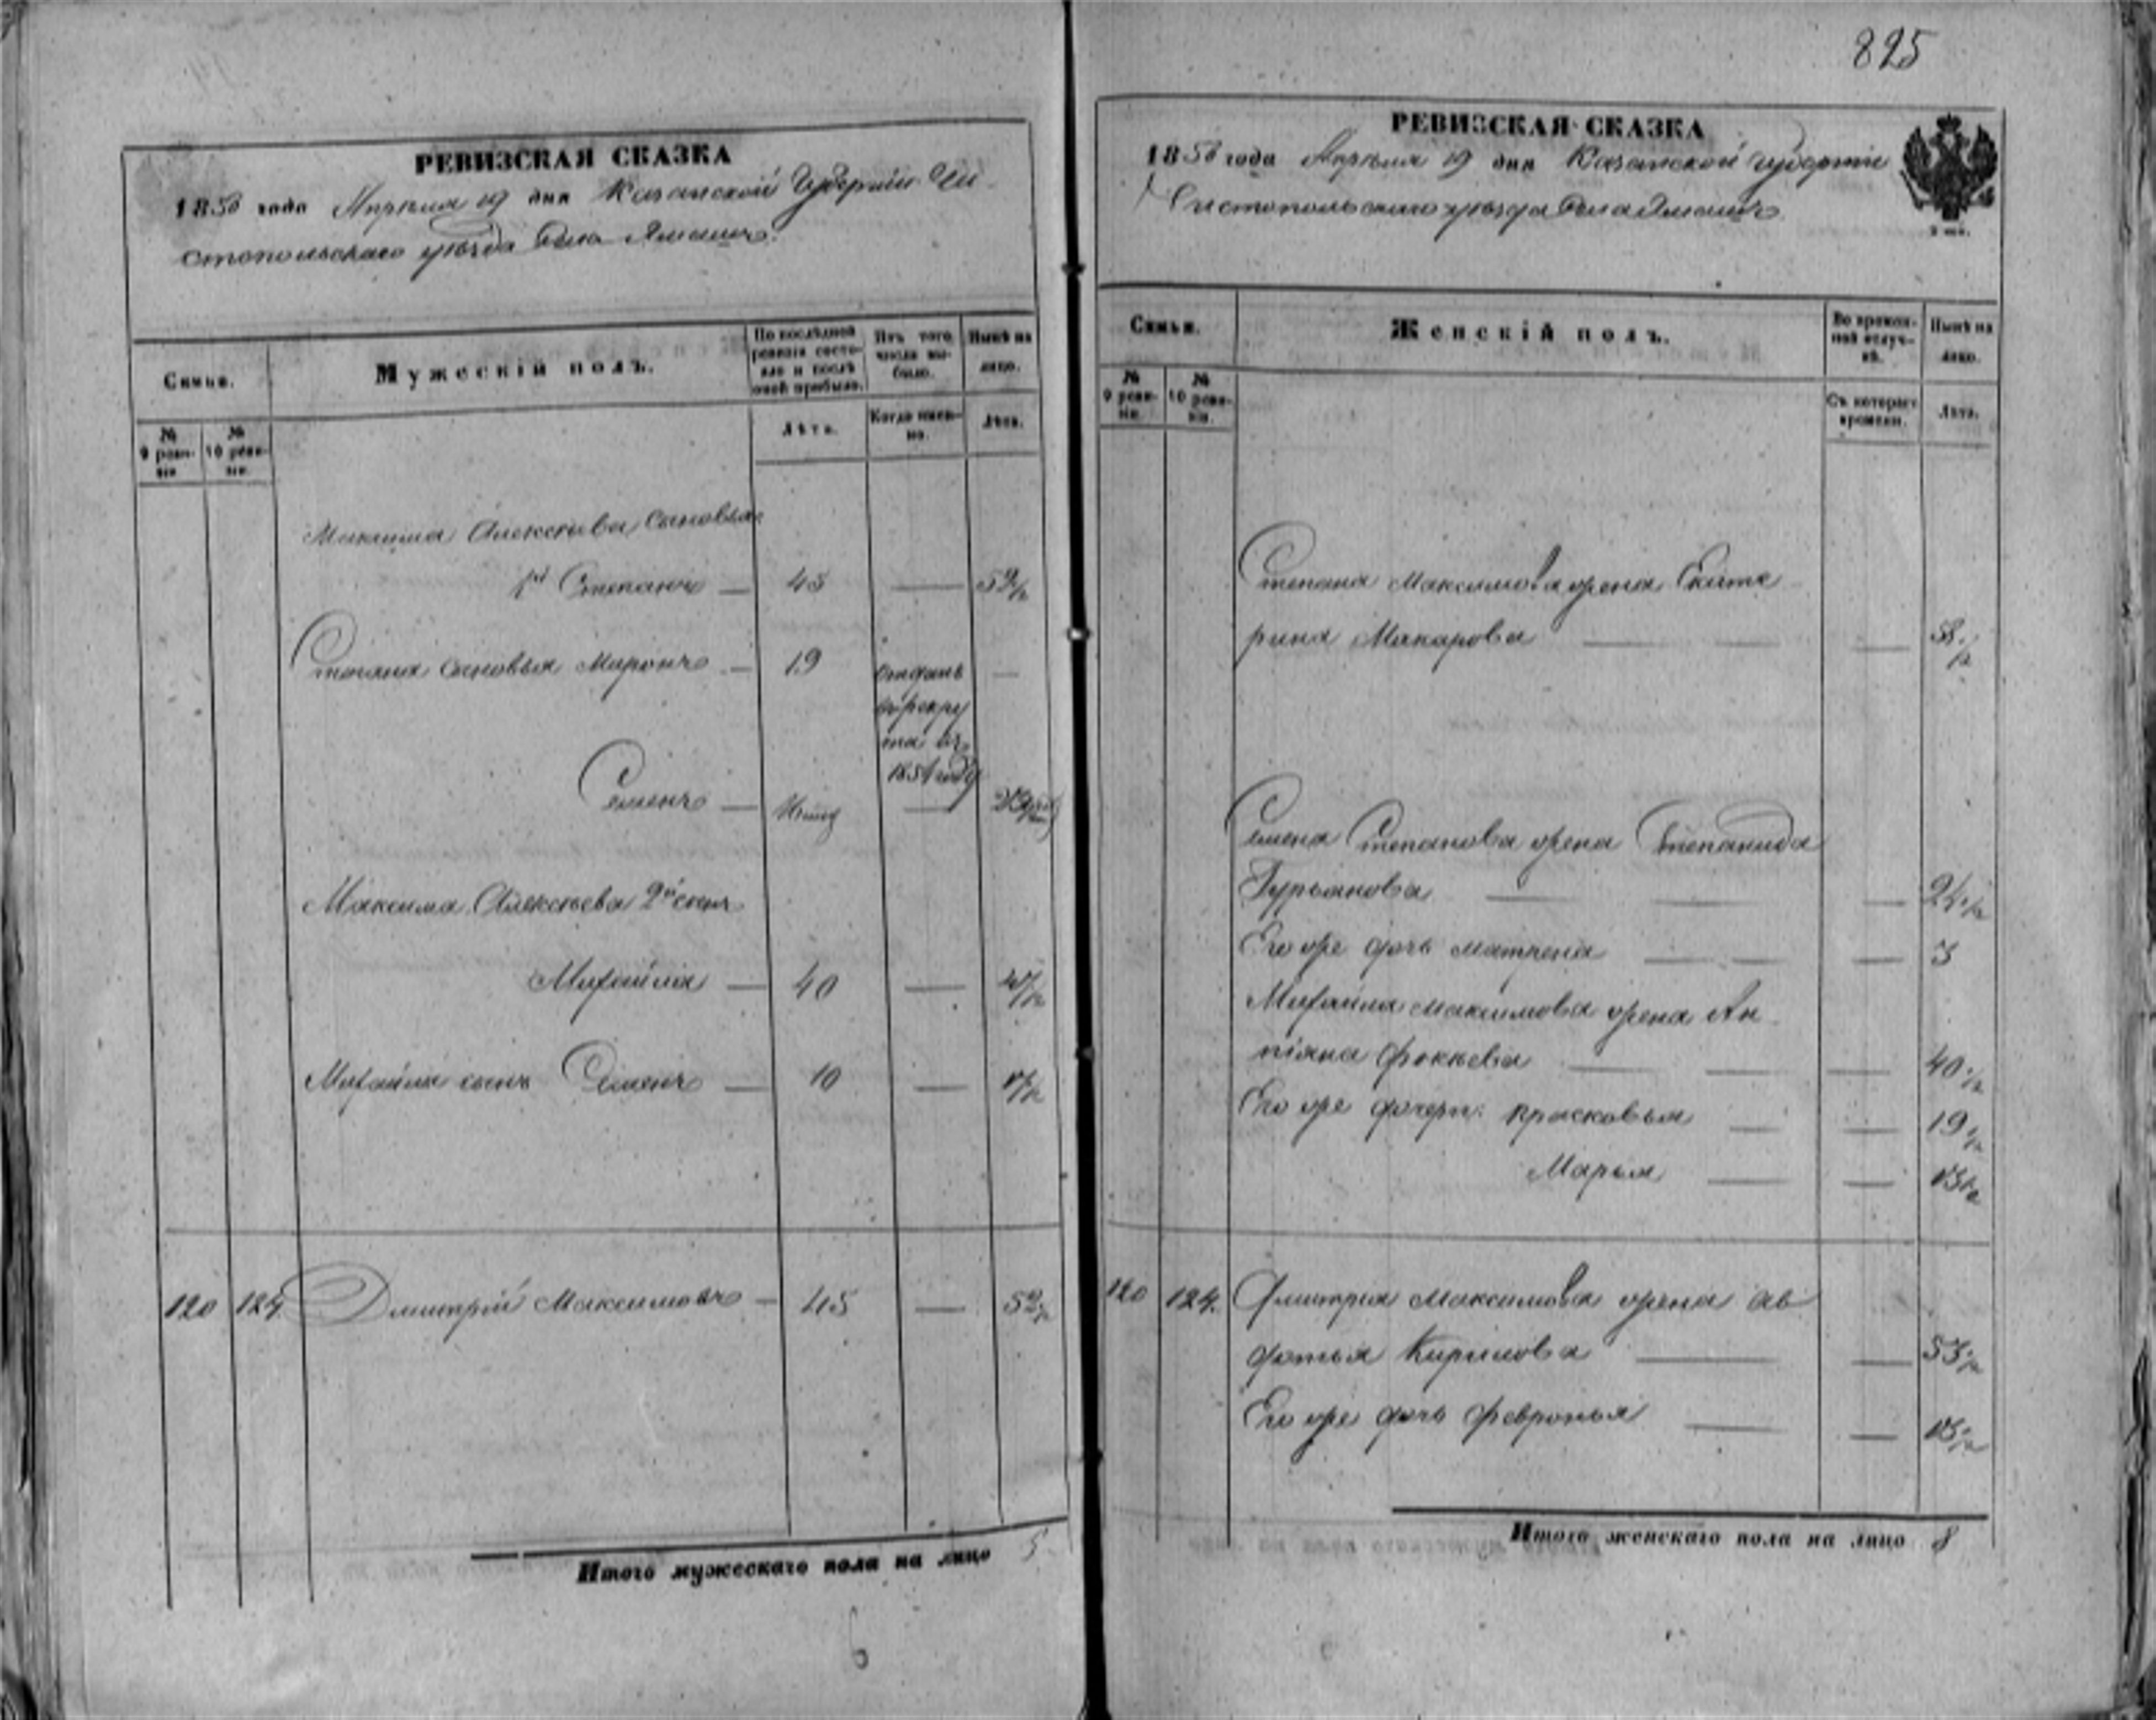 825
РЕВИЗСКАЯ СКАЗКА
1858 года Апреля 19 дня Казанской Губернии Чи-
стопольскаго уѣзда Села Ямашъ
Семьи.
Мужескій полъ.
По послѣдней
ревизіи состо-
яло и послѣ
оной прибыло.
Изъ того
числа вы-
было.
Нынѣ на
лицо.
№
9 реви-
зіи
№
10 реви-
зіи.
Лѣта.
Когда имен-
но.
Лѣта.
Максима Алексѣева сыновья
1й Степанъ — 45 — 52 1/2
Степана сыновья Миронъ — 19 отданъ —
въ рекру
та въ
1854 году
Семенъ —
Максима Алексѣева 2й сынъ
Михайла — 40 — 47 1/2
Михайлы сынъ Семенъ — 10 — 17 1/2
120 124 Дмитрій Максимовъ — 45 — 52 1/2
Итого мужескаго пола на лицо 5
РЕВИЗСКАЯ СКАЗКА
1858 года Апреля 19 дня Казанской губерніи
Чистопольскаго уѣзда Села Ямашъ
Семьи.
Женскій полъ.
Во времен-
ной отлуч-
кѣ.
Нынѣ на
лицо.
№
9 реви-
зіи.
№
10 реви-
зіи.
Съ котораго
времени.
Лѣта.
Степана Максимова жена Екате
рина Макарова — — — 58 1/2
Семена Степанова жена Степанида
Гурьянова — — — 24 1/2
Его же дочь Матрена — — — 3
Михайла Максимова жена Ан
тіяна Фокѣева — — — 40 1/2
Его же дочери: Прасковья — — 19 1/2
Марья — — 13 1/2
120 124. Дмитрия Максимова жена Ав
дотья Кирилова — — 53 1/2
Его же дочь Февронья — — 13 1/2
Итого женскаго пола на лицо 8